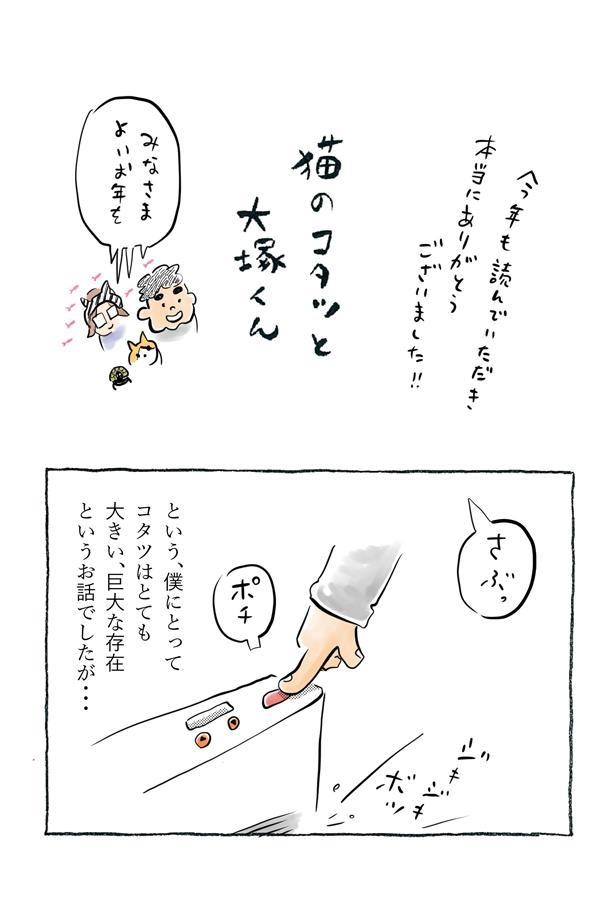 今年も読んでいただき
本当にありがとう
ございました!!
猫のコタツと
大塚くん
みなさま
よいお年を
さぶっ
ポチ
という、僕にとって
コタツはとても
大きい、巨大な存在
というお話でしたが・・・
ジジ
ボッ